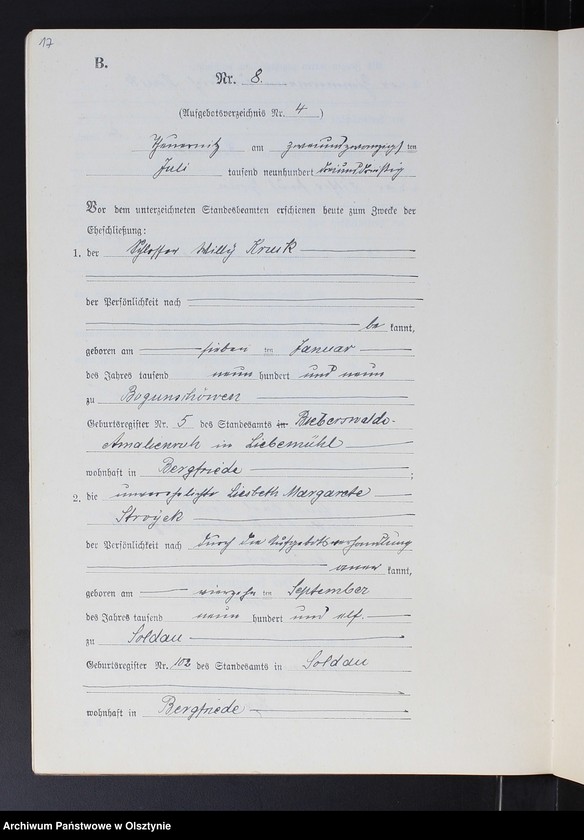 17
B.
Nr. 8.
(Aufgebotsverzeichnis Nr. 4)
Theuernitz am zweiundzwanzigsten
Juli tausend neunhundert dreiunddreißig
Vor dem unterzeichneten Standesbeamten erschienen heute zum Zwecke der
Eheschließung:
1. der Schlosser Willy Krusk
der Persönlichkeit nach
be kannt,
geboren am sieben ten Januar
des Jahres tausend neun hundert und neun
zu Bogunschöwen
Geburtsregister Nr. 5 des Standesamts in Bieberswalde-
Amalienruh in Liebemühl
wohnhaft in Bergfriede ;
2. die unverehelichte Liesbeth Margarete
Stroyek
der Persönlichkeit nach durch die Aufgebotsverhandlung
aner kannt,
geboren am vierzehn ten September
des Jahres tausend neun hundert und elf.
zu Soldau
Geburtsregister Nr. 102 des Standesamts in Soldau
wohnhaft in Bergfriede
Archiwum Państwowe w Olsztynie